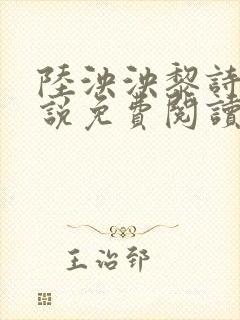 陸泱泱黎詩
說免費閱讀
王治郅